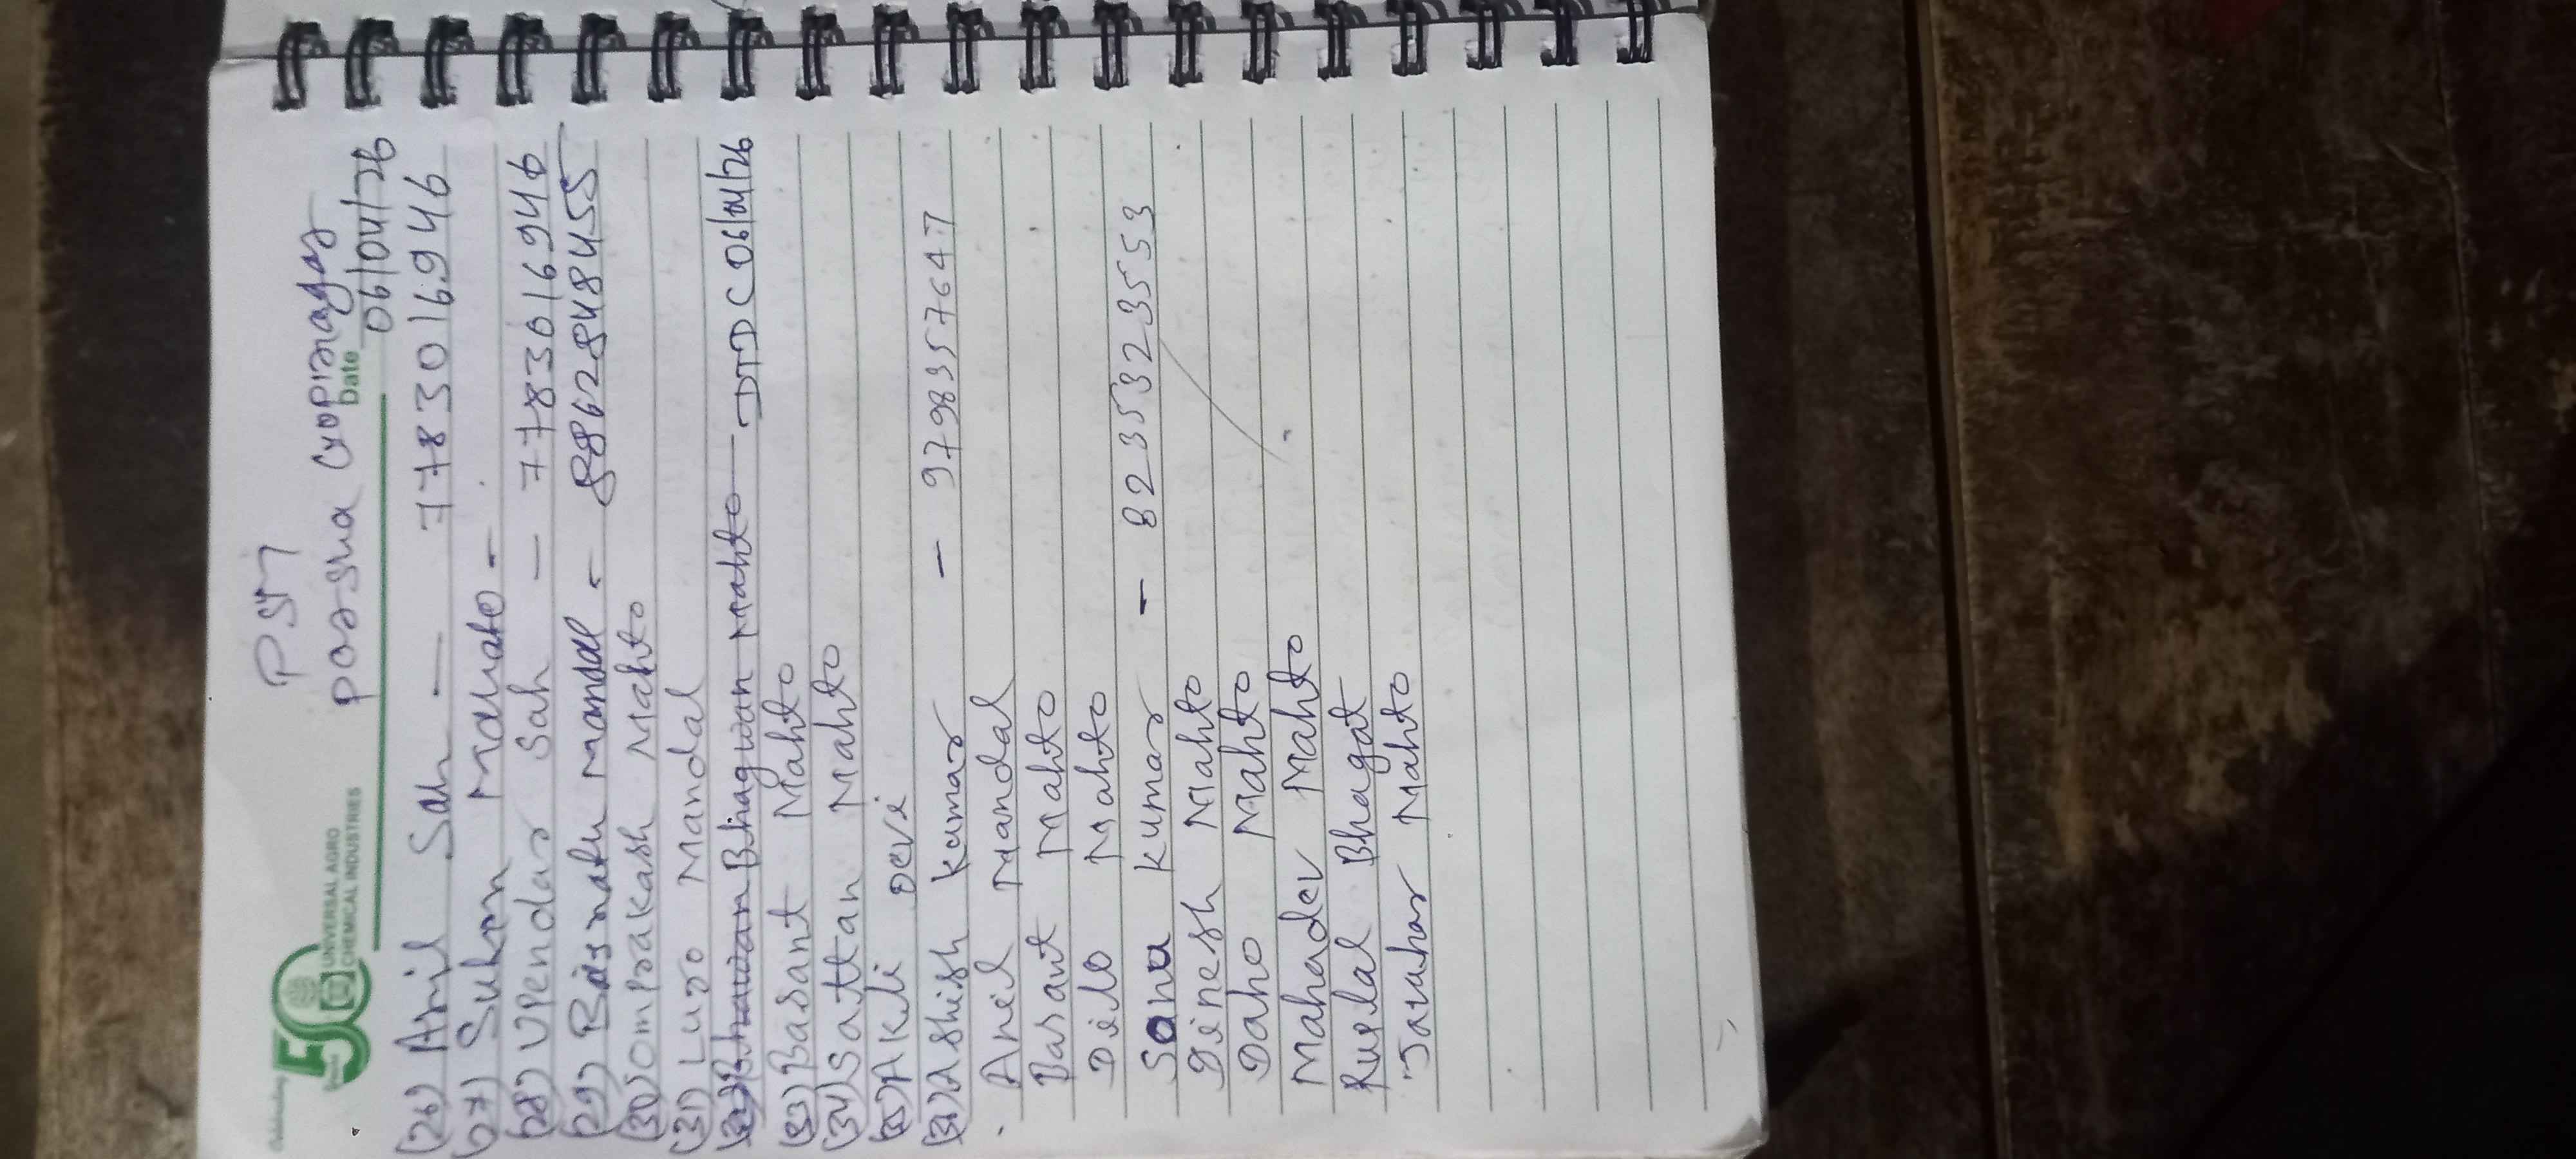 Celebrating
50
Years
UNIVERSAL AGRO
CHEMICAL INDUSTRIES
PSM
Date 06/04/26
(26) Anil Sah — 7783016946
(27) Sukan Mahato -
(28) Upendar Sah — 7783016946
(29) Mandal - 8862848455
(30) Omprakash Mahto
(31) Luro Mandal
(32) Bhawan Bhagwan Mahto — DTDC 06/04/26
(33) Basant Mahto
(34) Sattan Mahto
(35) Akli Devi
(36) Ashish Kumar — 9798357647
Anil Mandal
Basant Mahto
Dilo Mahto
Sonu Kumar — 8235323553
Dinesh Mahto
Daho Mahto
Mahadev Mahto
Ruplal Bhagat
Javahar Mahto